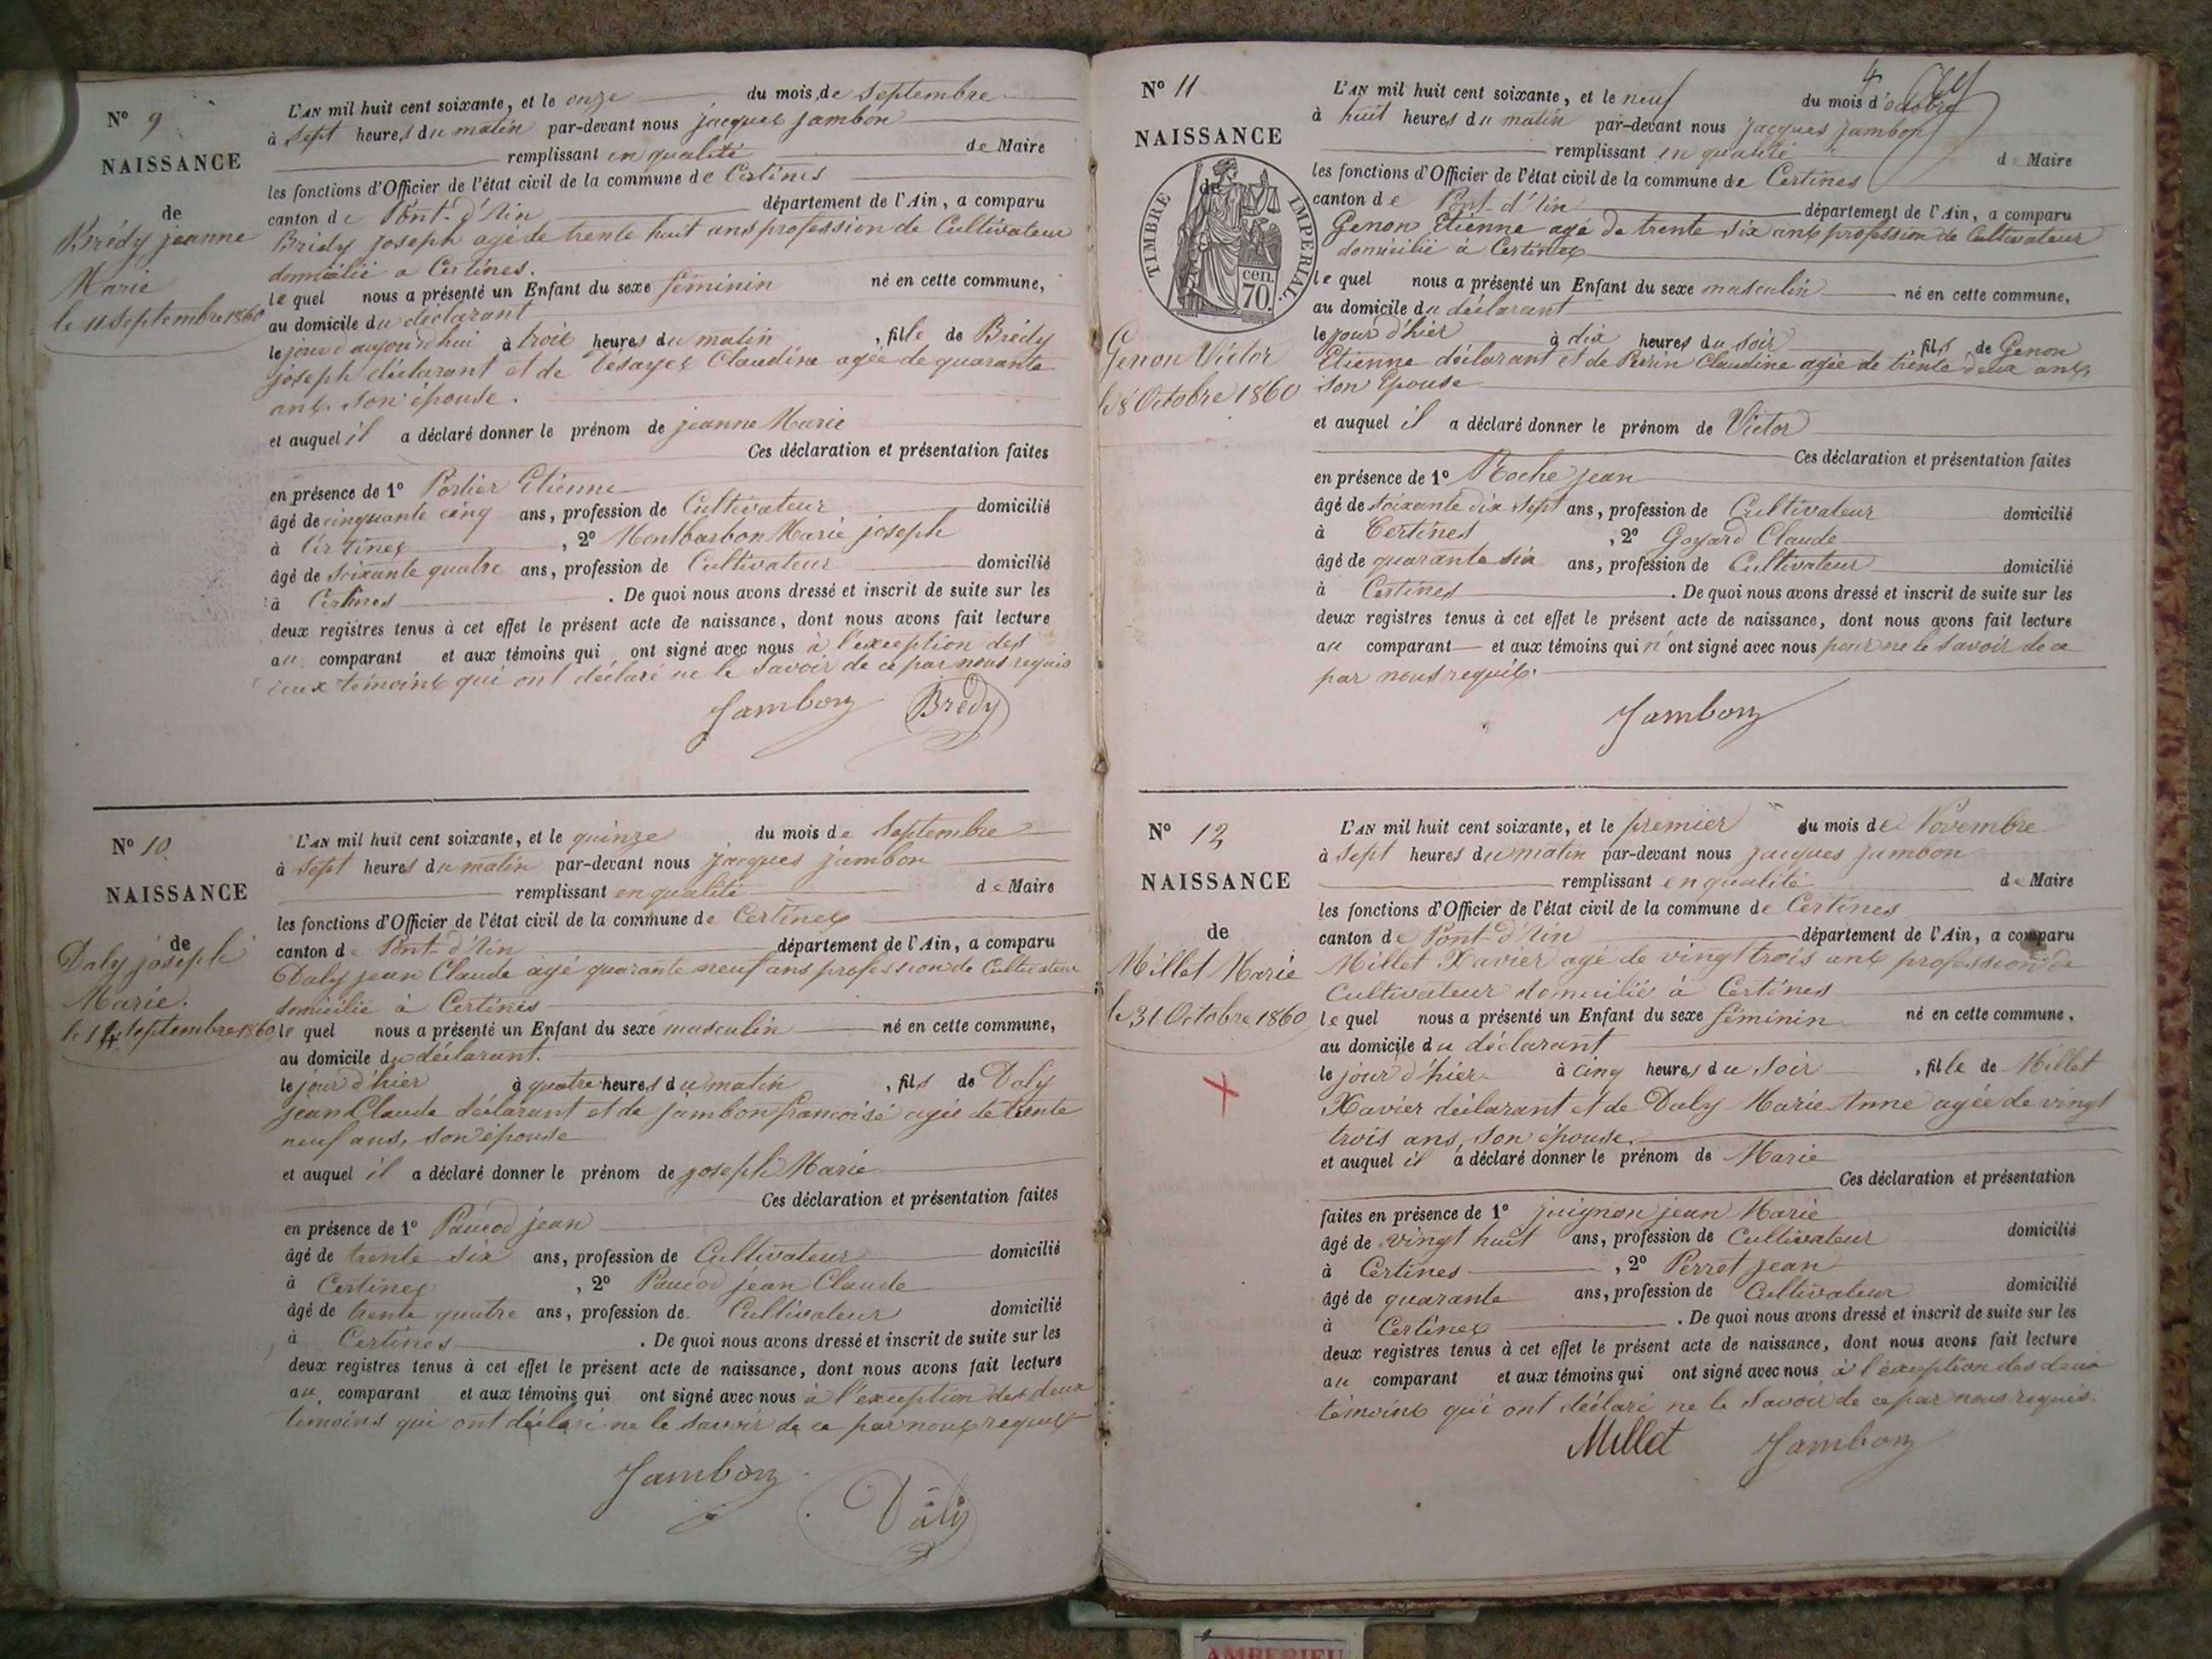 N° 9
NAISSANCE
de
Brédy jeanne
Marie
le 11 septembre 1860
L'AN mil huit cent soixante, et le onze du mois de septembre
à sept heures du matin par-devant nous jacques jambon
remplissant en qualité de Maire
les fonctions d'Officier de l'état civil de la commune de Certines
canton de Pont-d'Ain département de l'Ain, a comparu
Brédy joseph agé de trente huit ans profession de Cultivateur
domicilié a Certines.
le quel nous a présenté un Enfant du sexe féminin né en cette commune,
au domicile du déclarant
le jour d'aujourd'hui à trois heures du matin, fille de Brédy
joseph déclarant et de Désayes Claudine agée de quarante
ans son épouse.
et auquel il a déclaré donner le prénom de jeanne Marie
Ces déclaration et présentation faites
en présence de 1° Portier Etienne
âgé de cinquante cinq ans, profession de Cultivateur domicilié
à Certines, 2° Montbarbon Marie joseph
âgé de soixante quatre ans, profession de Cultivateur domicilié
à Certines. De quoi nous avons dressé et inscrit de suite sur les
deux registres tenus à cet effet le présent acte de naissance, dont nous avons fait lecture
au comparant et aux témoins qui ont signé avec nous à l'exception des
deux témoins qui ont déclaré ne le savoir de ce par nous requis
Jambon Brédy
N° 10
NAISSANCE
de
Daly joseph
Marie.
le 14 septembre 1860
L'AN mil huit cent soixante, et le quinze du mois de septembre
à sept heures du matin par-devant nous jacques jambon
remplissant en qualité de Maire
les fonctions d'Officier de l'état civil de la commune de Certines
canton de Pont-d'Ain département de l'Ain, a comparu
Daly jean Claude agé quarante neuf ans profession de Cultivateur
domicilié à Certines
le quel nous a présenté un Enfant du sexe masculin né en cette commune,
au domicile du déclarant.
le jour d'hier à quatre heures du matin, fils de Daly
jean Claude déclarant et de jambon françoise agée de trente
neuf ans, son épouse
et auquel il a déclaré donner le prénom de joseph Marie
Ces déclaration et présentation faites
en présence de 1° Paucod jean
âgé de trente six ans, profession de Cultivateur domicilié
à Certines, 2° Paucod jean Claude
âgé de trente quatre ans, profession de Cultivateur domicilié
à Certines. De quoi nous avons dressé et inscrit de suite sur les
deux registres tenus à cet effet le présent acte de naissance, dont nous avons fait lecture
au comparant et aux témoins qui ont signé avec nous à l'exception des deux
témoins qui ont déclaré ne le savoir de ce par nous requis
Jambon
Daly
4
N° 11
NAISSANCE
de
TIMBRE IMPERIAL
70 cen.
Genon Victor
le 8 Octobre 1860
L'AN mil huit cent soixante, et le neuf du mois d'octobre
à huit heures du matin par-devant nous jacques jambon
remplissant en qualité de Maire
les fonctions d'Officier de l'état civil de la commune de Certines
canton de Pont-d'Ain département de l'Ain, a comparu
Genon Etienne agé de trente six ans profession de Cultivateur
domicilié à Certines
le quel nous a présenté un Enfant du sexe masculin né en cette commune,
au domicile du déclarant
le jour d'hier à dix heures du soir fils de Genon
Etienne déclarant et de Perrin Claudine agée de trente deux ans,
son Epouse
et auquel il a déclaré donner le prénom de Victor
Ces déclaration et présentation faites
en présence de 1° Roche jean
âgé de soixante dix sept ans, profession de Cultivateur domicilié
à Certines, 2° Goyard Claude
âgé de quarante six ans, profession de Cultivateur domicilié
à Certines. De quoi nous avons dressé et inscrit de suite sur les
deux registres tenus à cet effet le présent acte de naissance, dont nous avons fait lecture
au comparant et aux témoins qui n'ont signé avec nous pour ne le savoir de ce
par nous requis.
Jambon
N° 12
NAISSANCE
de
Millet Marie
le 31 Octobre 1860
L'AN mil huit cent soixante, et le premier du mois de Novembre
à sept heures du matin par-devant nous jacques jambon
remplissant en qualité de Maire
les fonctions d'Officier de l'état civil de la commune de Certines
canton de Pont-d'Ain département de l'Ain, a comparu
Millet Xavier agé de vingt trois ans profession de
Cultivateur domicilié à Certines
le quel nous a présenté un Enfant du sexe féminin né en cette commune,
au domicile du déclarant
le jour d'hier à cinq heures du soir, fille de Millet
Xavier déclarant et de Daly Marie Anne agée de vingt
trois ans, son épouse.
et auquel il a déclaré donner le prénom de Marie
Ces déclaration et présentation
faites en présence de 1° juignon jean Marie
âgé de vingt huit ans, profession de Cultivateur domicilié
à Certines, 2° Perrot jean
âgé de quarante ans, profession de Cultivateur domicilié
à Certines. De quoi nous avons dressé et inscrit de suite sur les
deux registres tenus à cet effet le présent acte de naissance, dont nous avons fait lecture
au comparant et aux témoins qui ont signé avec nous à l'exception des deux
témoins qui ont déclaré ne le savoir de ce par nous requis.
Millet Jambon
AMBERIEU